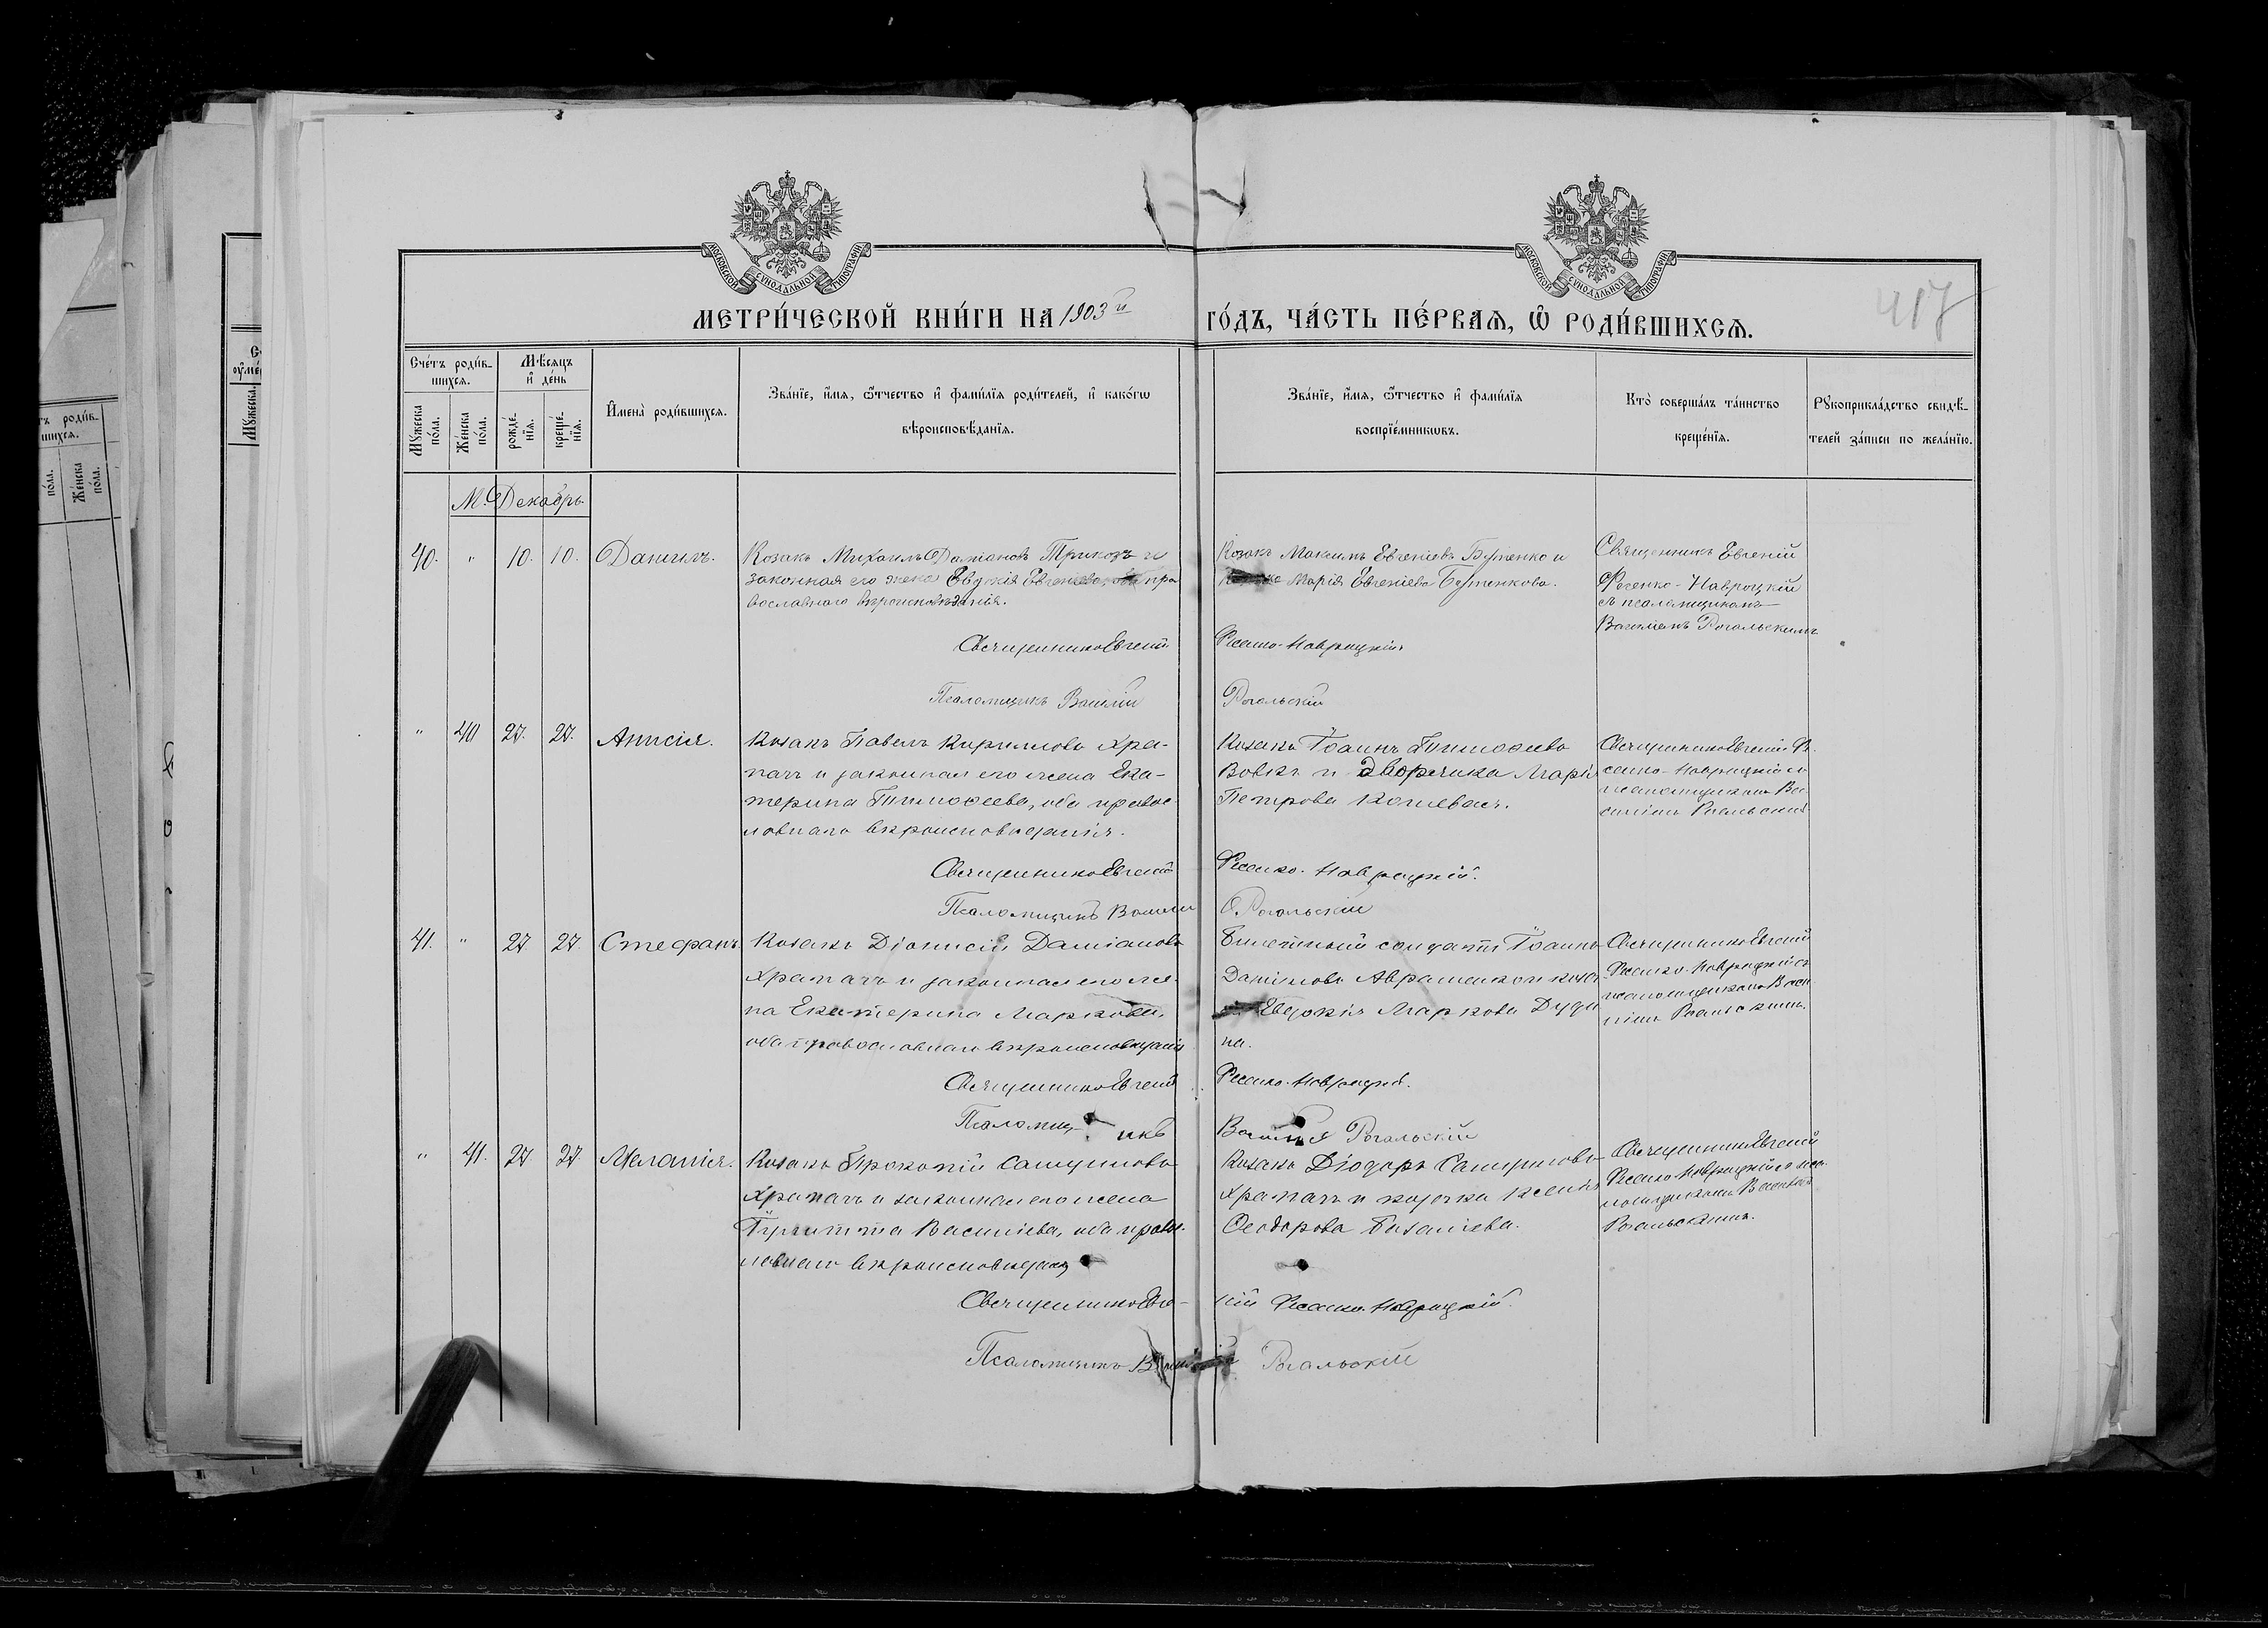 МОСКОВСКОЙ СѴНОДАЛЬНОЙ ТИПОГРАФІИ
МОСКОВСКОЙ СѴНОДАЛЬНОЙ ТИПОГРАФІИ
МЕТРИ́ЧЕСКОЙ КНИ́ГИ НА 1903й
ГО́ДЪ, ЧА́СТЬ ПЕ́РВАѦ, Ѡ҆ РОДИ́ВШИХСѦ.
417
Сче́тъ роди́в-
шихсѧ.
Мѣ́сѧцъ
и҆ де́нь
Мꙋ́жеска
по́ла.
Же́нска
по́ла.
рожде́-
нїѧ.
креще́-
нїѧ.
И҆мена̀ роди́вшихсѧ.
Зва́нїе, и҆́мѧ, ѻ҆́тчество и҆ фами́лїѧ роди́телей, и҆ како́гѡ
вѣроисповѣ́данїѧ.
Зва́нїе, и҆́мѧ, ѻ҆́тчество и҆ фами́лїѧ
воспрїе́мникѡвъ.
Кто̀ соверша́лъ та́инство
креще́нїѧ.
Рꙋкоприкла́дство свидѣ́-
телей за́писи по жела́нїю.
М. Декабрь
40. " 10. 10. Данiилъ.
Козакъ Михаилъ Дамiановъ Трикозъ и
законная его жена Евдокiя Евгенiева, оба пра
вославнаго вѣроисповѣданiя.
Козакъ Максимъ Евгенiевъ Бутенко и
Марiя Евгенiева Бутенкова.
Священникъ Евгенiй
Фесенко-Навроцкiй
съ псаломщикомъ
Василiемъ Рогальскимъ
Священникъ Евгенiй Фесенко-Навроцкiй
Псаломщикъ Василiй Рогальскiй
" 40 27. 27. Анисiя.
Козакъ Павелъ Кирилловъ Хра-
пачъ и законная его жена Ека-
терина Тимоѳеева, оба правос-
лавнаго вѣроисповѣданiя.
Козакъ Іоаннъ Тимоѳеевъ
Вовкъ и дворянка Марiя
Петрова
Священникъ Евгенiй Фе-
сенко-Навроцкiй съ
псаломщикомъ Ва
силiемъ Рогальскимъ
Священникъ Евгенiй Фесенко-Навроцкiй.
Псаломщикъ Василiй Рогальскiй
41. " 27 27. Стефанъ
Козакъ Дiонисiй Дамiановъ
Храпачъ и законная его же-
на Екатерина Маркова,
оба православнаго вѣроисповѣданiя
Билетный солдатъ Іоаннъ
Данiиловъ Авраменко и
Евдокiя Маркова Дуди
на.
Священникъ Евгенiй
Фесенко-Навроцкiй съ
псаломщикомъ Васи
лiемъ Рогальскимъ.
Священникъ Евгенiй Фесенко-Навроцкiй.
Псаломщикъ Василiй Рогальскiй
" 41. 27 27 Меланiя.
Козакъ Прокопiй
Храпачъ и законная его жена
Іулитта Василiева, оба правос-
лавнаго вѣроисповѣданiя
Козакъ Дiодоръ
Храпачъ и козачка Ксенiя
Ѳеодорова
Священникъ Евгенiй
Фесенко-Навроцкiй съ псa-
ломщикомъ Василiемъ
Рогальскимъ.
Священникъ Евгенiй Фесенко-Навроцкiй.
Псаломщикъ Василiй Рогальскiй